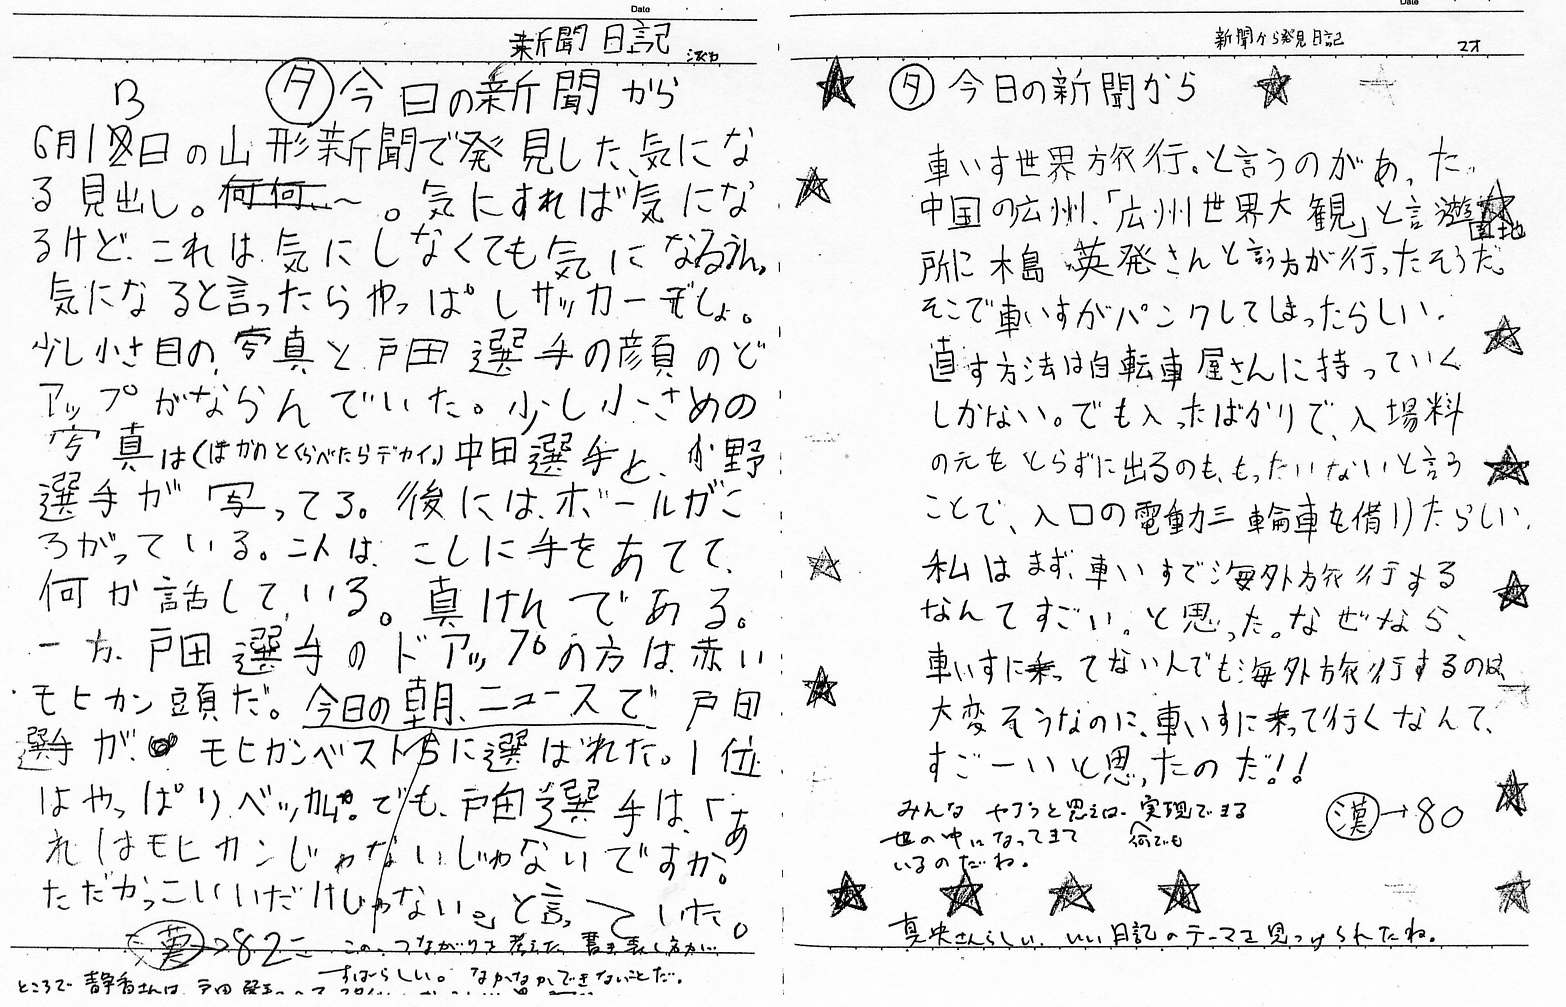 Date
新聞日記
夕 今日の新聞から
6月13日の山形新聞で発見した、気にな
る見出し。何何…〜。気にすれば気にな
るけど、これは気にしなくても気になるうん。
気になると言ったらやっぱしサッカーでしょ。
少し小さ目の、写真と戸田選手の顔のど
アップがならんでいた。少し小さめの
写真は(ほかのとくらべたらデカイ。)中田選手と、小野
選手が写ってる。後には、ボールがこ
ろがっている。二人は、こしに手をあてて、
何か話して、いる。真けんである。
一方、戸田選手のドアップの方は、赤い
モヒカン頭だ。今日の朝、ニュースで戸田
選手が、モヒカンベスト5に選ばれた。1位
はやっぱり、ベッカム。でも、戸田選手は、「あ
れはモヒカンじゃないじゃないですか。
ただかっこいいだけじゃない。」と言っていた。
漢→82こ
この、つながりを考えた書き表し方が
すばらしい。なかなかできないことだ。
ところで静香さんは、戸田選手
Date
新聞から発見日記
夕 今日の新聞から
車いす世界旅行。と言うのがあった。
中国の広州、「広州世界大観」と言う遊園地
所に木島英発さんと言う方が行ったそうだ。
そこで車いすがパンクしてしまったらしい。
直す方法は自転車屋さんに持っていく
しかない。でも入ったばかりで、入場料
の元をとらずに出るのも、もったいないと言う
ことで、入口の電動三輪車を借りたらしい。
私はまず、車いすで海外旅行する
なんてすごい。と思った。なぜなら、
車いすに乗ってない人でも海外旅行するのは
大変そうなのに、車いすに乗って行くなんて、
すごーいと思ったのだ!!
みんな やろうと思えば、実現できる
世の中になってきて 何でも
いるのだね。
漢→80
真央さんらしい、いい日記のテーマを見つけられたね。